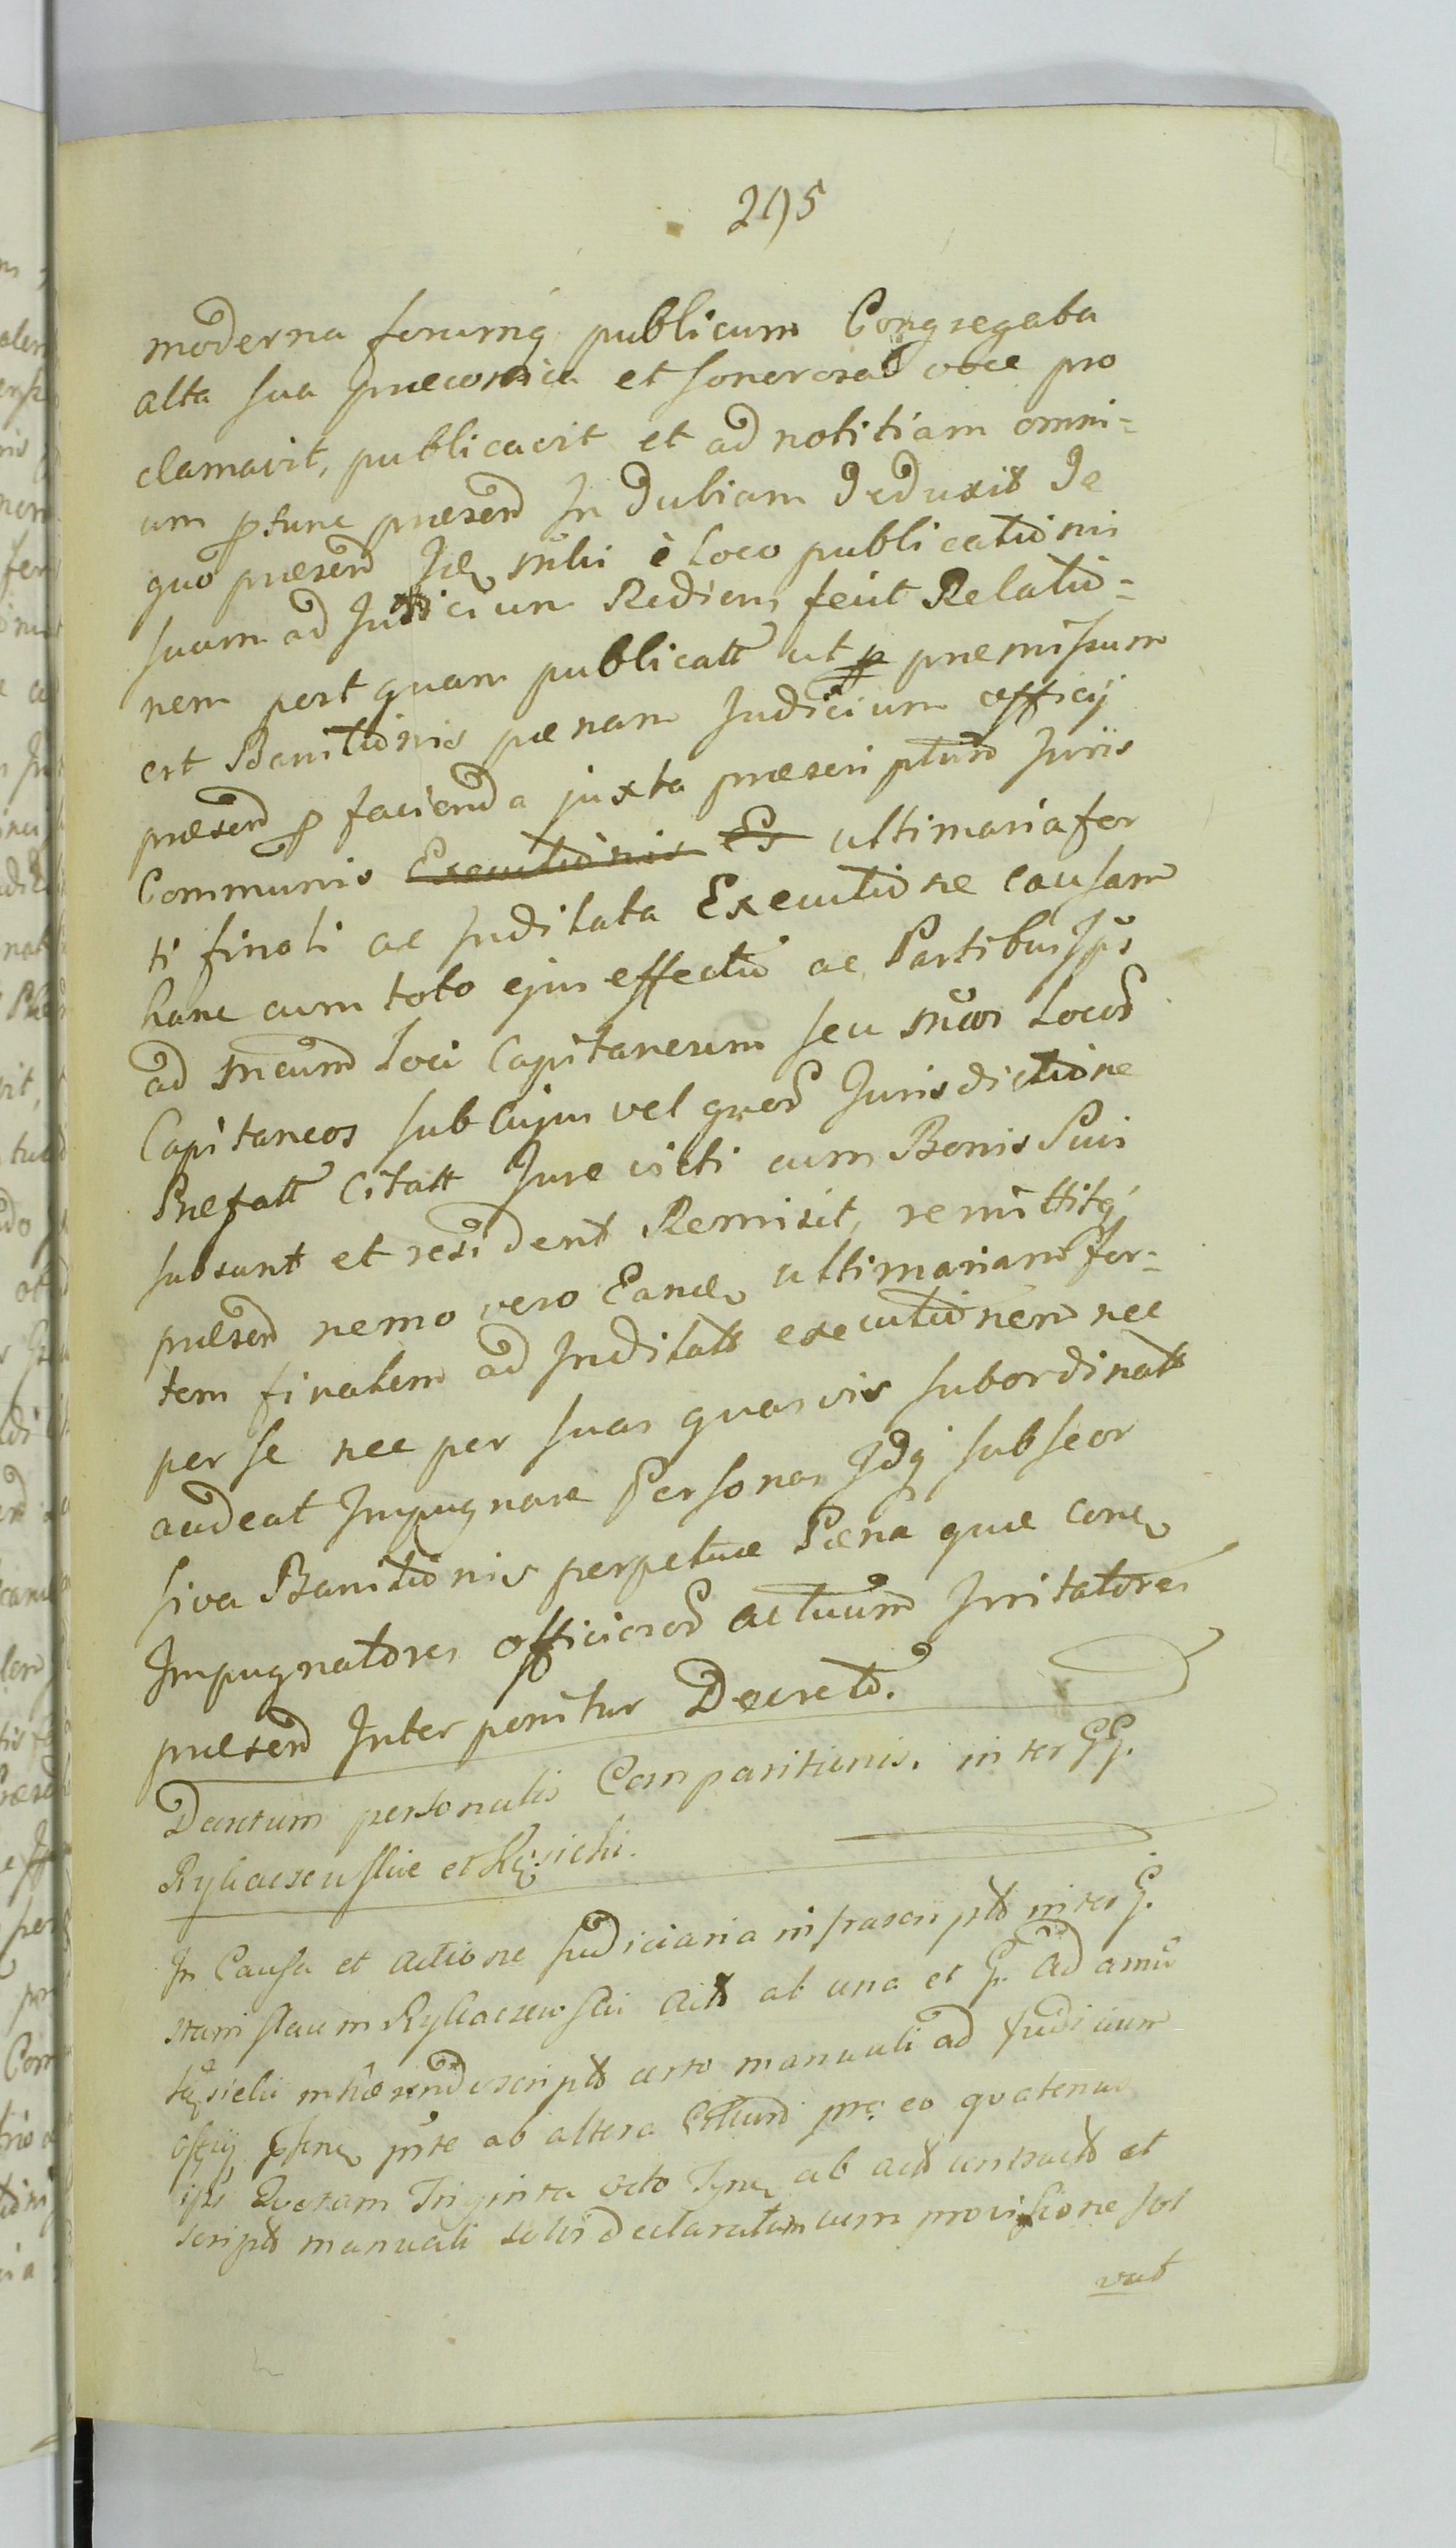 295
moderna forumq publicum Congregata
alta sua præconica et sonorosa voce pro
clamavit, publicavit et ad notitiam omni=
um ptunc præsend In dubiam deduxit De
quo præsend Jdē Mnlri è loco publicationis
suam ad Judicium Rediens fecit Relatio=
nem post quam publicatt ut p præmissum
est Banitionis pænam Judicium officÿ
præsend p facienda juxta præscriptum Juris
Communis Executionis Ex ultimaria for
ti finali ac Inditata Executione causam
hanc cum toto ejus effectu ac Partibus Jps
ad Mcum Loci Capitaneum seu Mcos Locor
Capitaneos sub Cujus vel quor Jurisdictione
Præfatt Citatt Jure victi cum Bonis Suis
subsunt et resident Remisit, remittitq
præsend nemo vero Eandē ultimariam for-
tem finalem ad Inditatt executionem nec
per se nec per suas quasvis subordinatt
audeat Impugnare Personas Jdq sub seor
siva Banitionis perpetuæ Pæna quæ cone
Impugnatores officiosor actuum Irritatores
præsend Interponitur Decreto.
Decretum personalis Comparitionis. inter GG.
In Causa et actione Judiciaria infrascriptt inter G.
Stanislaum Ryhaczewski Actt ab una et G. Adamū
inhærend scriptt certo manuali ad Judicium
Officÿ ptinē ab altera Citatum pro eo quatenus
ips Quotam Triginta octo Tynf ab Actt contractt et
scriptt manuali solvi declaratam cum provisione sol
vat